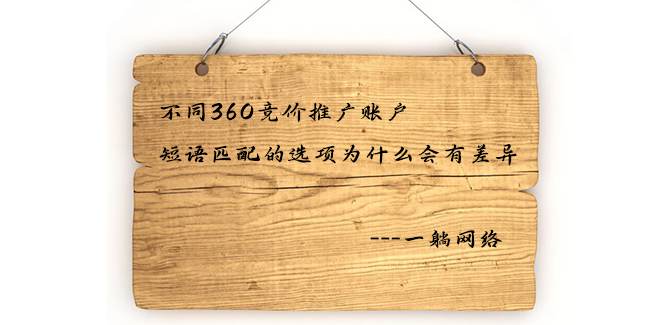 不同360竞价推广账户
短语匹配的选项为什么会有差异
---一躺网络